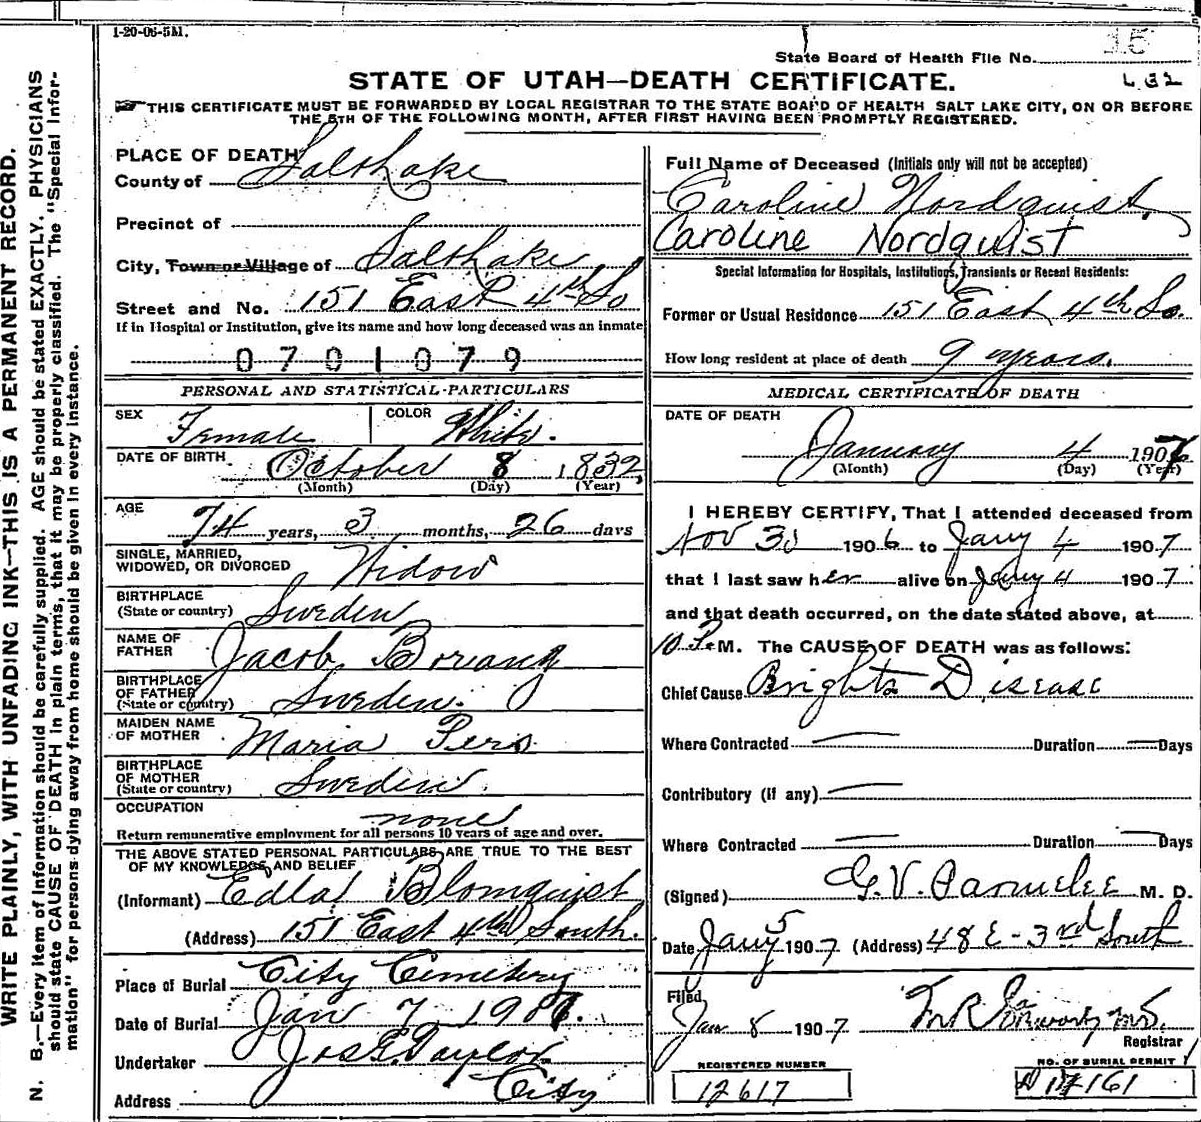 1-20-06-5M.
State Board of Health File No. 15
STATE OF UTAH—DEATH CERTIFICATE.
THIS CERTIFICATE MUST BE FORWARDED BY LOCAL REGISTRAR TO THE STATE BOARD OF HEALTH SALT LAKE CITY, ON OR BEFORE
THE 5TH OF THE FOLLOWING MONTH, AFTER FIRST HAVING BEEN PROMPTLY REGISTERED.
WRITE PLAINLY, WITH UNFADING INK—THIS IS A PERMANENT RECORD.
N. B.—Every item of information should be carefully supplied. AGE should be stated EXACTLY. PHYSICIANS
should state CAUSE OF DEATH in plain terms, that it may be properly classified. The "Special Infor-
mation" for persons dying away from home should be given in every instance.
PLACE OF DEATH
County of Salt Lake
Precinct of
City, Town or Village of Salt Lake
Street and No. 151 East 4th So
If in Hospital or Institution, give its name and how long deceased was an inmate
0701079
PERSONAL AND STATISTICAL PARTICULARS
SEX Female COLOR White.
DATE OF BIRTH October 8 1832
(Month) (Day) (Year)
AGE 74 years, 3 months, 26 days
SINGLE, MARRIED,
WIDOWED, OR DIVORCED Widow
BIRTHPLACE
(State or country) Sweden
NAME OF
FATHER Jacob Boriang
BIRTHPLACE
OF FATHER
(State or country) Sweden.
MAIDEN NAME
OF MOTHER Maria Pers.
BIRTHPLACE
OF MOTHER
(State or country) Sweden
OCCUPATION none
Return remunerative employment for all persons 10 years of age and over.
THE ABOVE STATED PERSONAL PARTICULARS ARE TRUE TO THE BEST
OF MY KNOWLEDGE AND BELIEF
(Informant) Edla Blomquist
(Address) 151 East 4th South.
Place of Burial City Cemetery
Date of Burial Jan 7 1907.
Undertaker Jos E. Taylor
Address City
Full Name of Deceased (Initials only will not be accepted)
Caroline Nordquist.
Caroline Nordquist
Special Information for Hospitals, Institutions, Transients or Recent Residents:
Former or Usual Residence 151 East 4th So.
How long resident at place of death 9 years.
MEDICAL CERTIFICATE OF DEATH
DATE OF DEATH
January 4 1907
(Month) (Day) (Year)
I HEREBY CERTIFY, That I attended deceased from
Nov 30 1906 to Jany 4 1907
that I last saw her alive on Jany 4 1907
and that death occurred, on the date stated above, at
10 P. M. The CAUSE OF DEATH was as follows:
Chief Cause Brights Disease
Where Contracted — Duration — Days
Contributory (if any) —
Where Contracted — Duration — Days
(Signed) G. V. Parmelee M. D.
Date Jany 5 1907 (Address) 48 E - 3rd South
Filed
Jan 8 1907
Registrar
REGISTERED NUMBER
12617
NO. OF BURIAL PERMIT